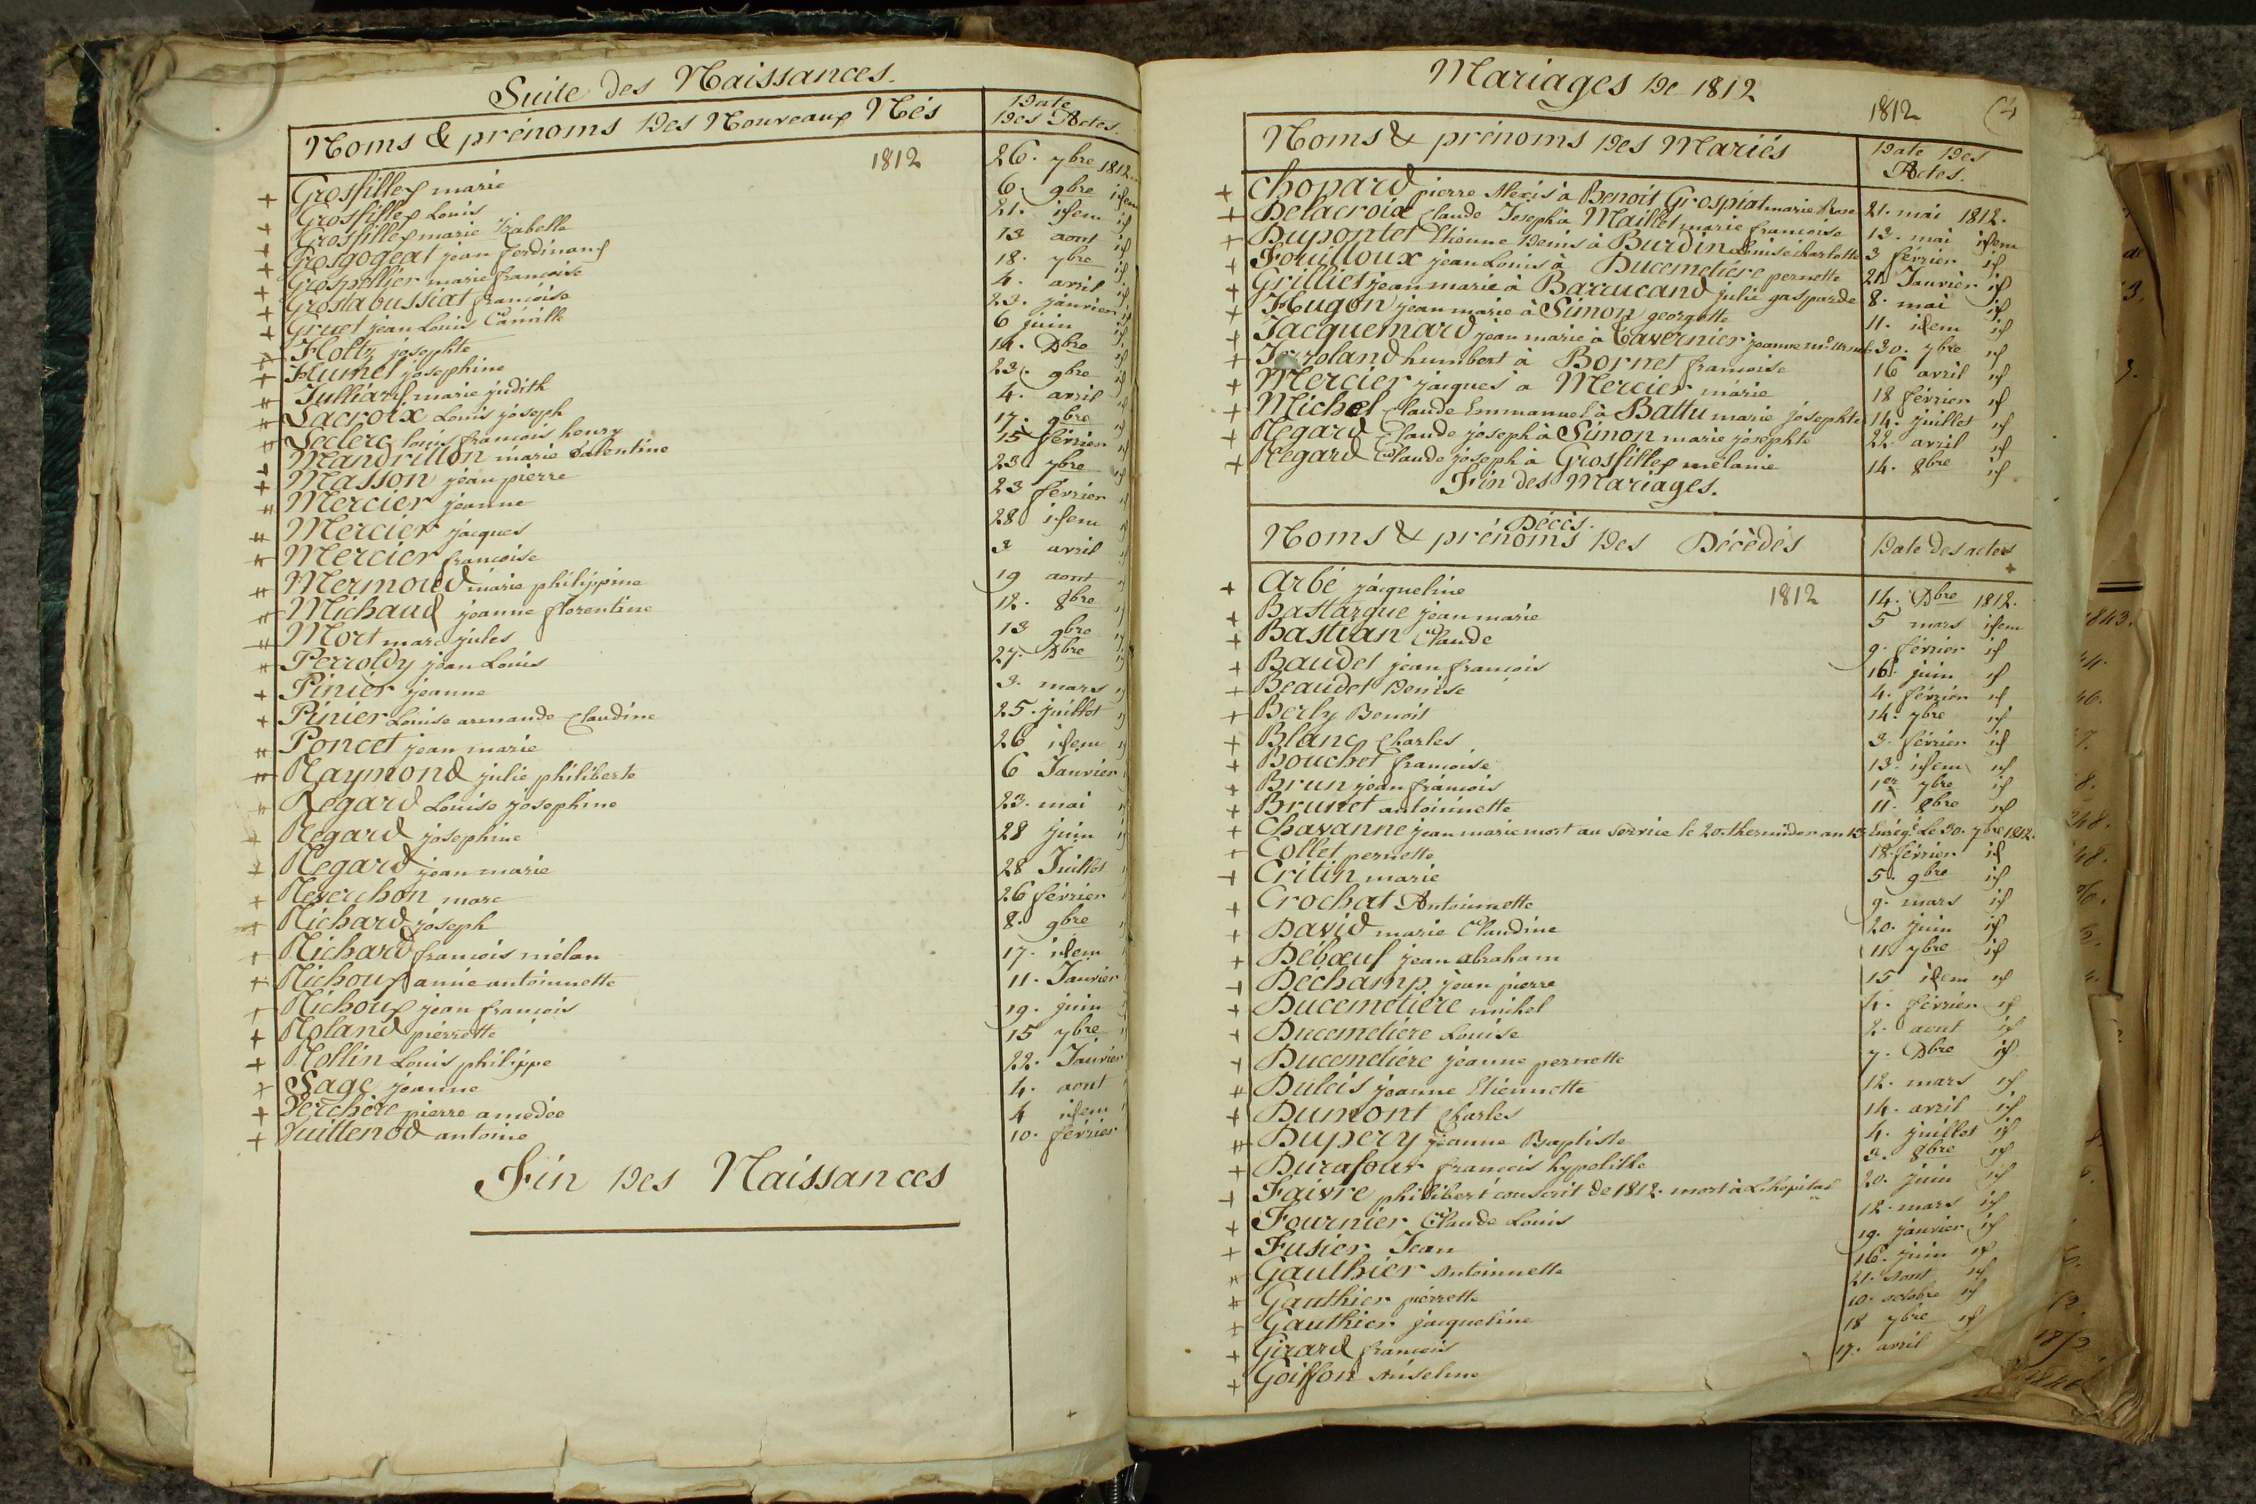 Suite des Naissances.
Noms & prénoms Des Nouveaux Nés
Date Des Actes.
1812
Grosfillex marie 26. 7bre 1812.
Grosfillex Louis 6. 9bre idem
Grosfillex marie Izabelle 21. idem id
Grosgogeat jean ferdinand 13 aout id
Grospellier marie francoise 18. 7bre id
Grostabussiat francoise 4. avril id
Gruet jean Louis Camille 23. janvier id
Holtz josephte 6 juin id
Humel josephine 14. Dbre id
Julliard marie judith 23. 9bre id
Lacroix Louis joseph 4. avril id
Leclerc louis francois henry 17. 9bre id
Mandrillon marie valentine 15 février id
Masson jean pierre 23. 7bre id
Mercier jeanne 23 février id
Mercier jacques 28 idem id
Mercier francoise 3 avril id
Mermoud marie philippine 19 aout id
Michaud jeanne florentine 12. 8bre id
Mort marc jules 13 9bre id
Perroldy jean Louis 27. Dbre id
Pinier jeanne 3. mars id
Pinier Louise armande Claudine 25. juillet id
Poncet jean marie 26 idem id
Raymond julie philiberte 6 Janvier
Regard Louise josephine 23. mai id
Regard josephine 28 juin id
Regard jean marie 28 Juillet
Reverchon marc 26 février
Richard joseph 8. 9bre
Richard francois mélan 17. idem
Richoux anne antoinnette 11. Janvier
Richoux jean francois 19. juin
Roland pierrette 15 7bre
Rollin Louis philippe 22. Janvier
Sage jeanne 4. aout
Verchère pierre amedée 4 idem
Vuillenod antoine 10. février
Fin Des Naissances
Mariages De 1812
1812
Noms & prénoms Des Mariés
Date Des Actes.
Chopard pierre Alexis à Benoit Grospiat marie Rose 21. mai 1812.
Delacroix Claude Joseph à Maillet marie francoise 13. mai idem
Dupontet Etienne Denis à Burdin Louise charlotte 3 février id
Fouilloux jean Louis à Ducemetière pernette 21 Janvier id
Grilliet jean marie à Barrucand julie gasparde 8. mai id
Hugon jean marie à Simon georgette 11. idem id
Jacquemard jean marie à Tavernier jeanne 30. 7bre id
humbert à Bornet francoise 16 avril id
Mercier jacques à Mercier marie 18 février id
Michel Claude Emmanuel à Battu marie josephte 14. juillet id
Regard Claude joseph à Simon marie josephte 22. avril id
Regard Claude joseph à Grosfillex melanie 14. 8bre id
Fin des Mariages.
Décès.
Noms & prénoms Des Décédés
Date des actes
1812
Arbé jacqueline 14. Dbre 1812.
Bastargue jean marie 5 mars idem
Bastian Claude 9. février id
Baudet jean francois 16. juin id
Beaudet Denise 4. février id
Berly Benoit 14. 7bre id
Blanc Charles 3. février id
Bouchet francoise 13. idem id
Brun jean francois 1er 7bre id
Brunet antoinnette 11. 8bre id
Chavanne jean marie mort au service le 20. thermidor an 13 Enregé. Le 30. 7bre 1812.
Collet pernette 18. février id
Critin marie 5. 9bre id
Crochat Antoinnette 9. mars id
David marie Claudine 20. juin id
Débœuf jean abraham 11 7bre id
Déchamp jean pierre 15 idem id
Ducemetière michel 4. février id
Ducemetière Louise 2. aout id
Ducemetière jeanne pernette 7. Dbre id
Dulcis jeanne Etiennette 12. mars id
Dumont Charles 14. avril id
Dupery jeanne Baptiste 4. juillet id
Durafour francois hypolitte 3. 8bre id
Faivre philibert conscrit de 1812. mort à L'hopital 20. juin id
Fournier Claude Louis 12. mars id
Fusier Jean 19. janvier id
Gauthier Antoinnette 16. juin id
Gauthier pierrette 21. aout id
Gauthier jacqueline 10. octobre id
Girard francois 18 7bre id
Goiffon Anselme 17. avril